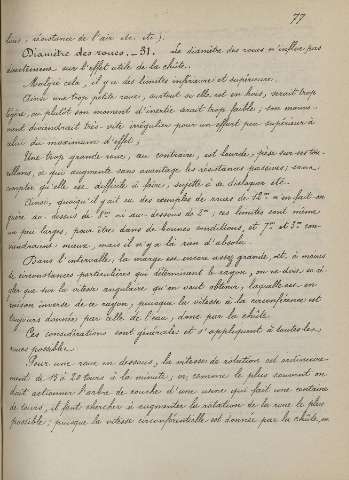 77
lions, résistance de l'air etc. etc.).
Diamètre des roues. - 31. Le diamètre des roues n'influe pas
directement sur l'effet utile de la chûte.
Malgré cela, il y a des limites inférieure et supérieure.
Ainsi une trop petite roue, surtout si elle est en bois, serait trop
légère, ou plutôt son moment d'inertie serait trop faible; son mouve-
ment deviendrait très-vite irrégulier pour un effort peu supérieur à
celui du maximum d'effet.
Une trop grande roue, au contraire, est lourde, pèse sur ses tou-
rillons, ce qui augmente sans avantage les résistances passives; sans
compter qu'elle est difficile à faire, sujette à se disloquer etc.
Ainsi, quoiqu'il y ait eu des exemples de roues de 12m n'en fait-on
guère au-dessus de 8m ni au-dessous de 2m; ces limites sont même
un peu larges, pour être dans de bonnes conditions, et 7m et 3m con-
viendraient mieux, mais il n'y a là rien d'absolu.
Dans l'intervalle, la marge est encore assez grande, et, à moins
de circonstances particulières qui déterminent le rayon, on va dois se ré-
gler que sur la vitesse angulaire qu'on veut obtenir, laquelle est en
raison inverse de ce rayon, puisque la vitesse à la circonférence est
toujours donnée par celle de l'eau, donc par la chûte.
Ces considérations sont générales et s'appliquent à toutes les
roues possibles.
Pour une roue en dessous, la vitesse de rotation est ordinaire-
ment de 15 à 20 tours à la minute; or, comme le plus souvent on
doit actionner l'arbre de couche d'une usine qui fait une centaine
de tours, il faut chercher à augmenter la rotation de la roue le plus
possible; puisque la vitesse circonférentielle est donnée par la chûte, on